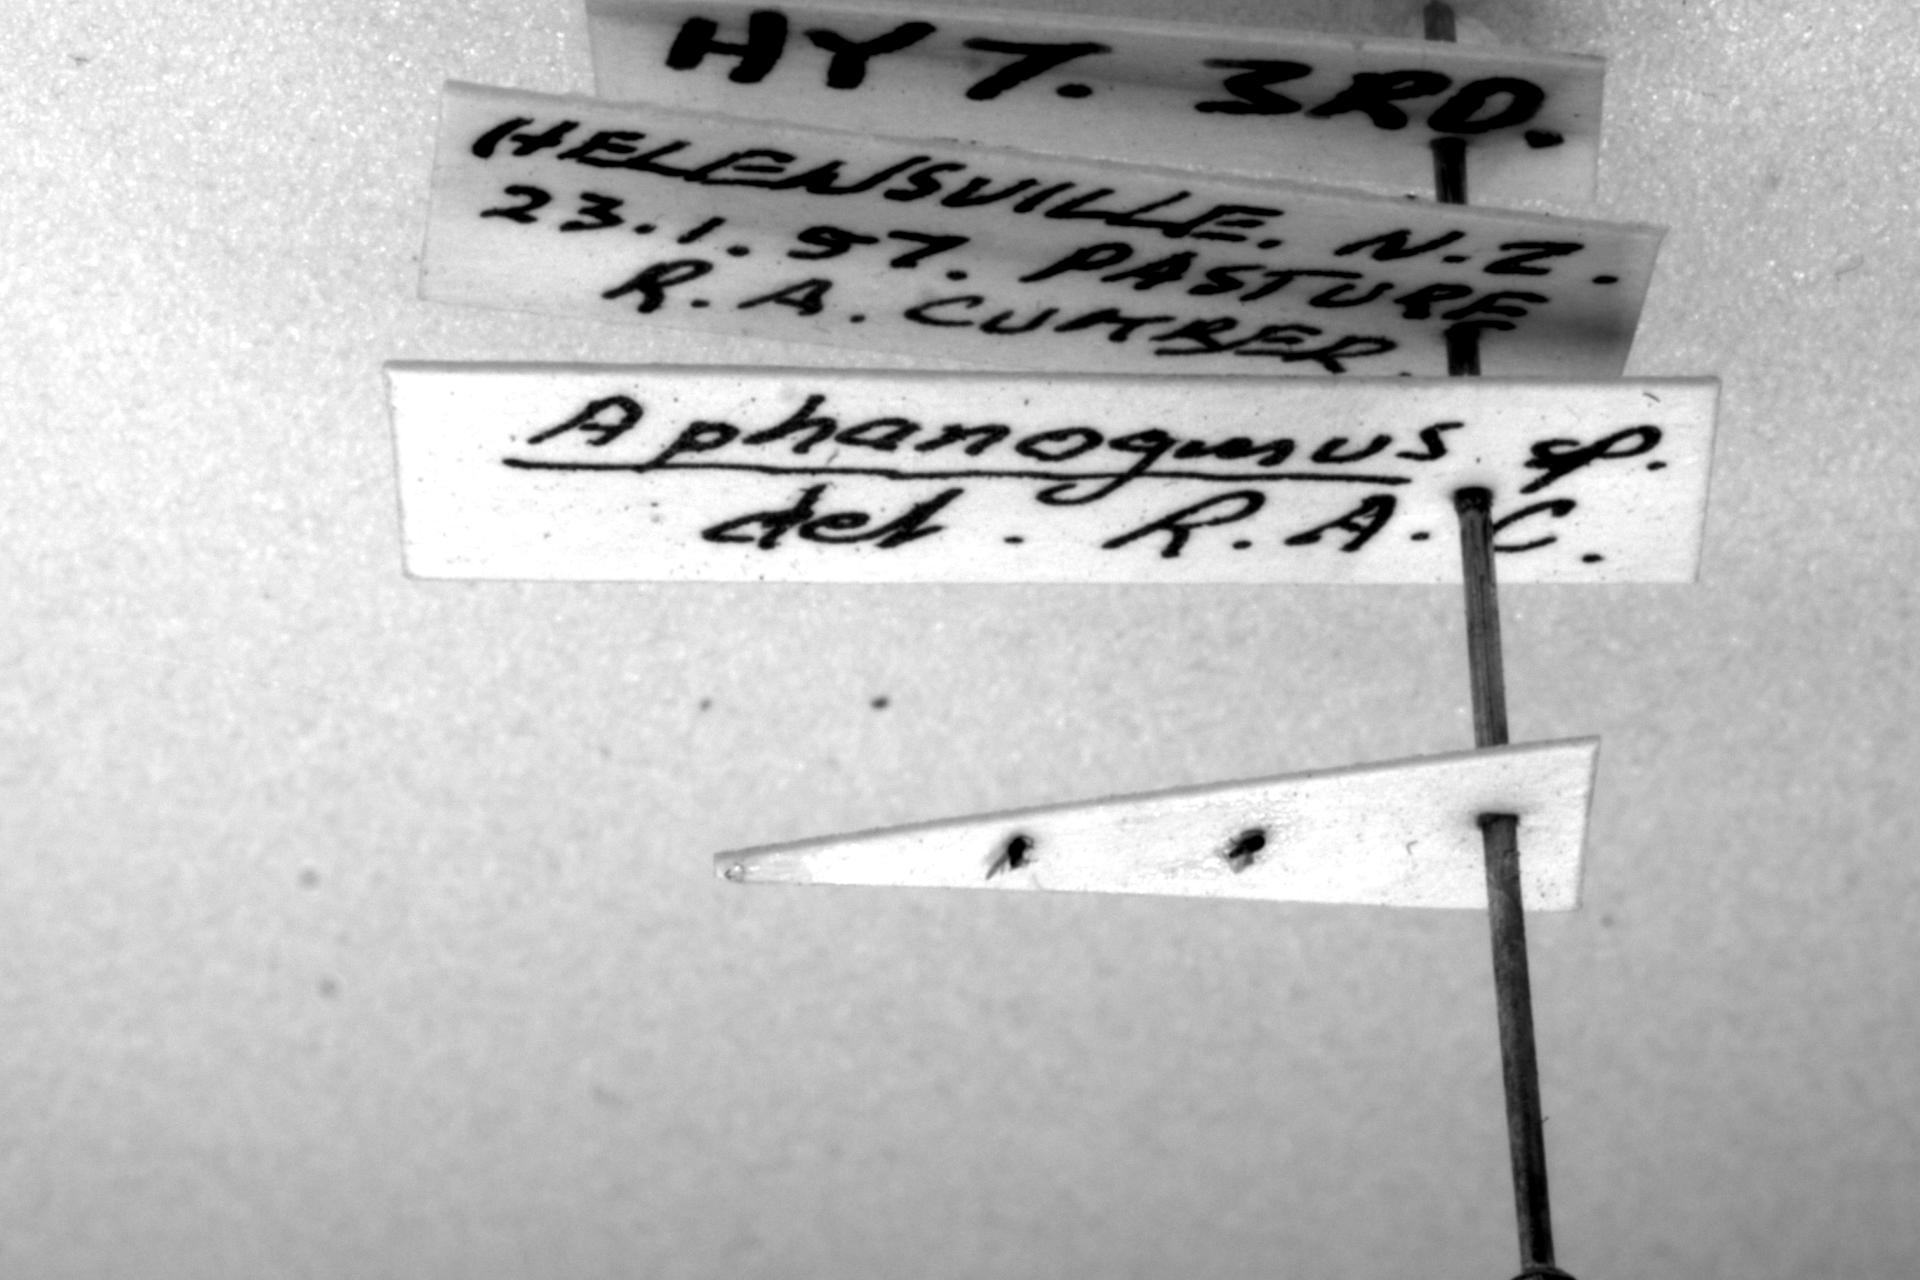 HY 7. 3RD.
HELENSVILLE. N.Z.
23.1.57. PASTURE
R. A. CUMBER.
Aphanogmus sp.
det. R.A.C.